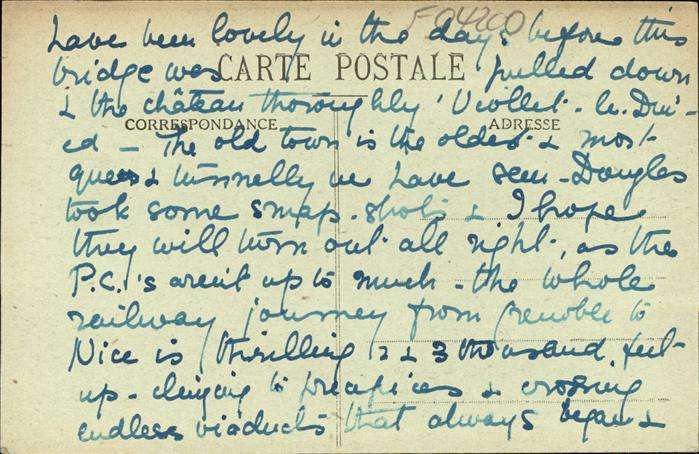 F04200
have been lovely in the days before this
bridge was CARTE POSTALE pulled down
& the château thoroughly 'Viollet-le-Duc'-
CORRESPONDANCE ADRESSE
ed - The old town is the oldest & most
queer & tunnelly we have seen - Douglas
took some snap-shots & I hope
they will turn out all right, as the
P.C.'s aren't up to much - the whole
railway journey from Grenoble to
Nice is thrilling 2 & 3 thousand feet
up - clinging to precipices & crossing
endless viaducts that always began &